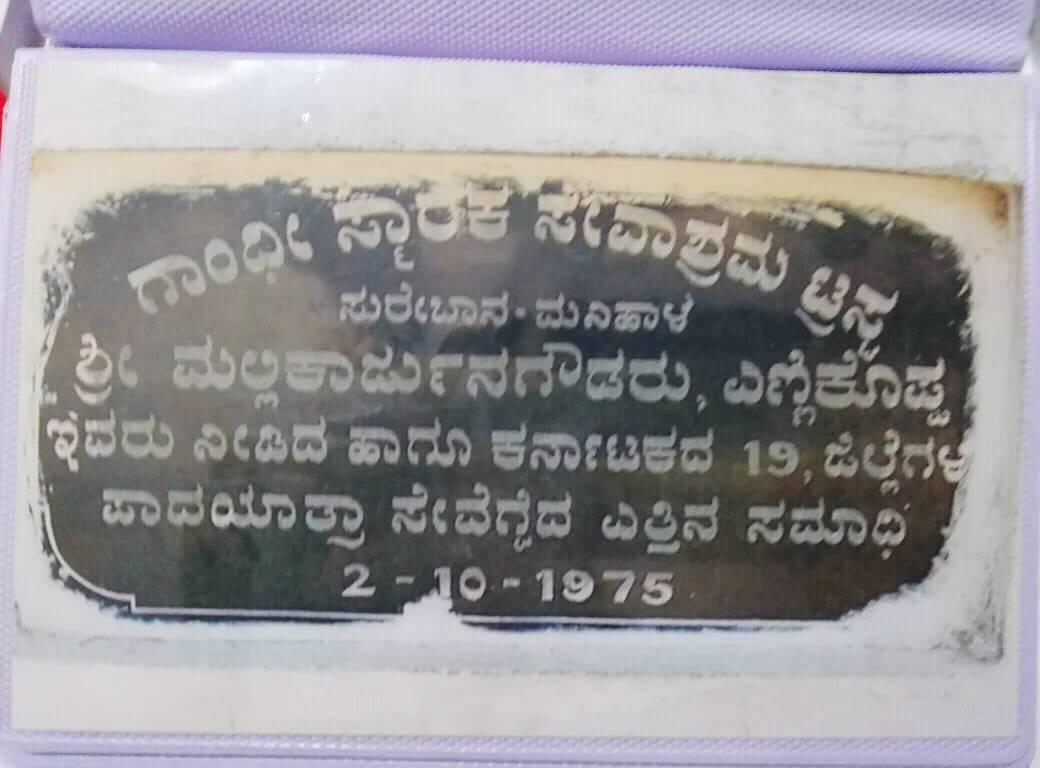 ಗಾಂಧೀ ಸ್ಮಾರಕ ಸೇವಾಶ್ರಮ ಟ್ರಸ್ಟ
ಸುರೇಬಾನ-ಮನಿಹಾಳ
ಶ್ರೀ ಮಲ್ಲಿಕಾರ್ಜುನಗೌಡರು, ಎಣ್ಣಿಕೊಪ್ಪ
ಇವರು ನೀಡಿದ ಹಾಗೂ ಕರ್ನಾಟಕದ 19, ಜಿಲ್ಲೆಗಳ
ಪಾದಯಾತ್ರಾ ಸೇವೆಗೈದ ಎತ್ತಿನ ಸಮಾಧಿ
2-10-1975